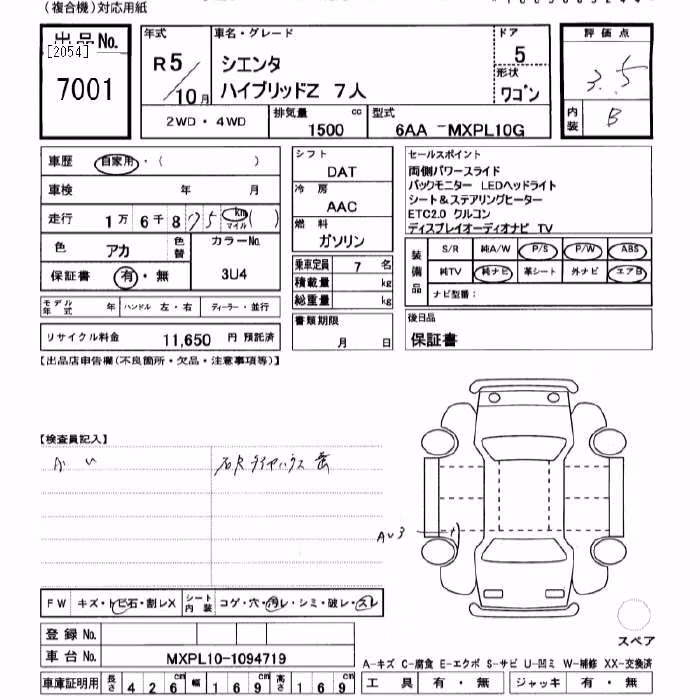 (複合機)対応用紙
出品No.
[2054]
7001
年式
R5/10月
車名・グレード
シエンタ
ハイブリッドZ 7人
ドア
5
形状
ワゴン
評価点
3.5
内装
B
2WD・4WD
排気量
1500 cc
型式
6AA -MXPL10G
車歴 自家用・( )
車検 年 月
走行 1万6千875 km マイル ( )
色 アカ 色替
カラーNo.
3U4
保証書 有・無
モデル年式 年 ハンドル 左・右 ディーラー・並行
リサイクル料金 11,650 円 預託済
シフト
DAT
冷房
AAC
燃料
ガソリン
乗車定員 7 名
積載量 kg
総重量 kg
書類期限
月 日
セールスポイント
両側パワースライド
バックモニター LEDヘッドライト
シート&ステアリングヒーター
ETC2.0 クルコン
ディスプレイオーディオナビ TV
装備品
S/R 純A/W P/S P/W ABS
純TV 純ナビ 革シート 外ナビ エアB
ナビ型番:
後日品
保証書
【出品店申告欄(不良箇所・欠品・注意事項等)】
【検査員記入】
AU3
FW キズ・トビ石・割レX
シート内装 コゲ・穴・汚レ・シミ・破レ・スレ
登録No.
車台No. MXPL10-1094719
車庫証明用 長さ 426cm 幅 169cm 高さ 169cm
スペア
A-キズ C-腐食 E-エクボ S-サビ U-凹ミ W-補修 XX-交換済
工具 有・無 ジャッキ 有・無